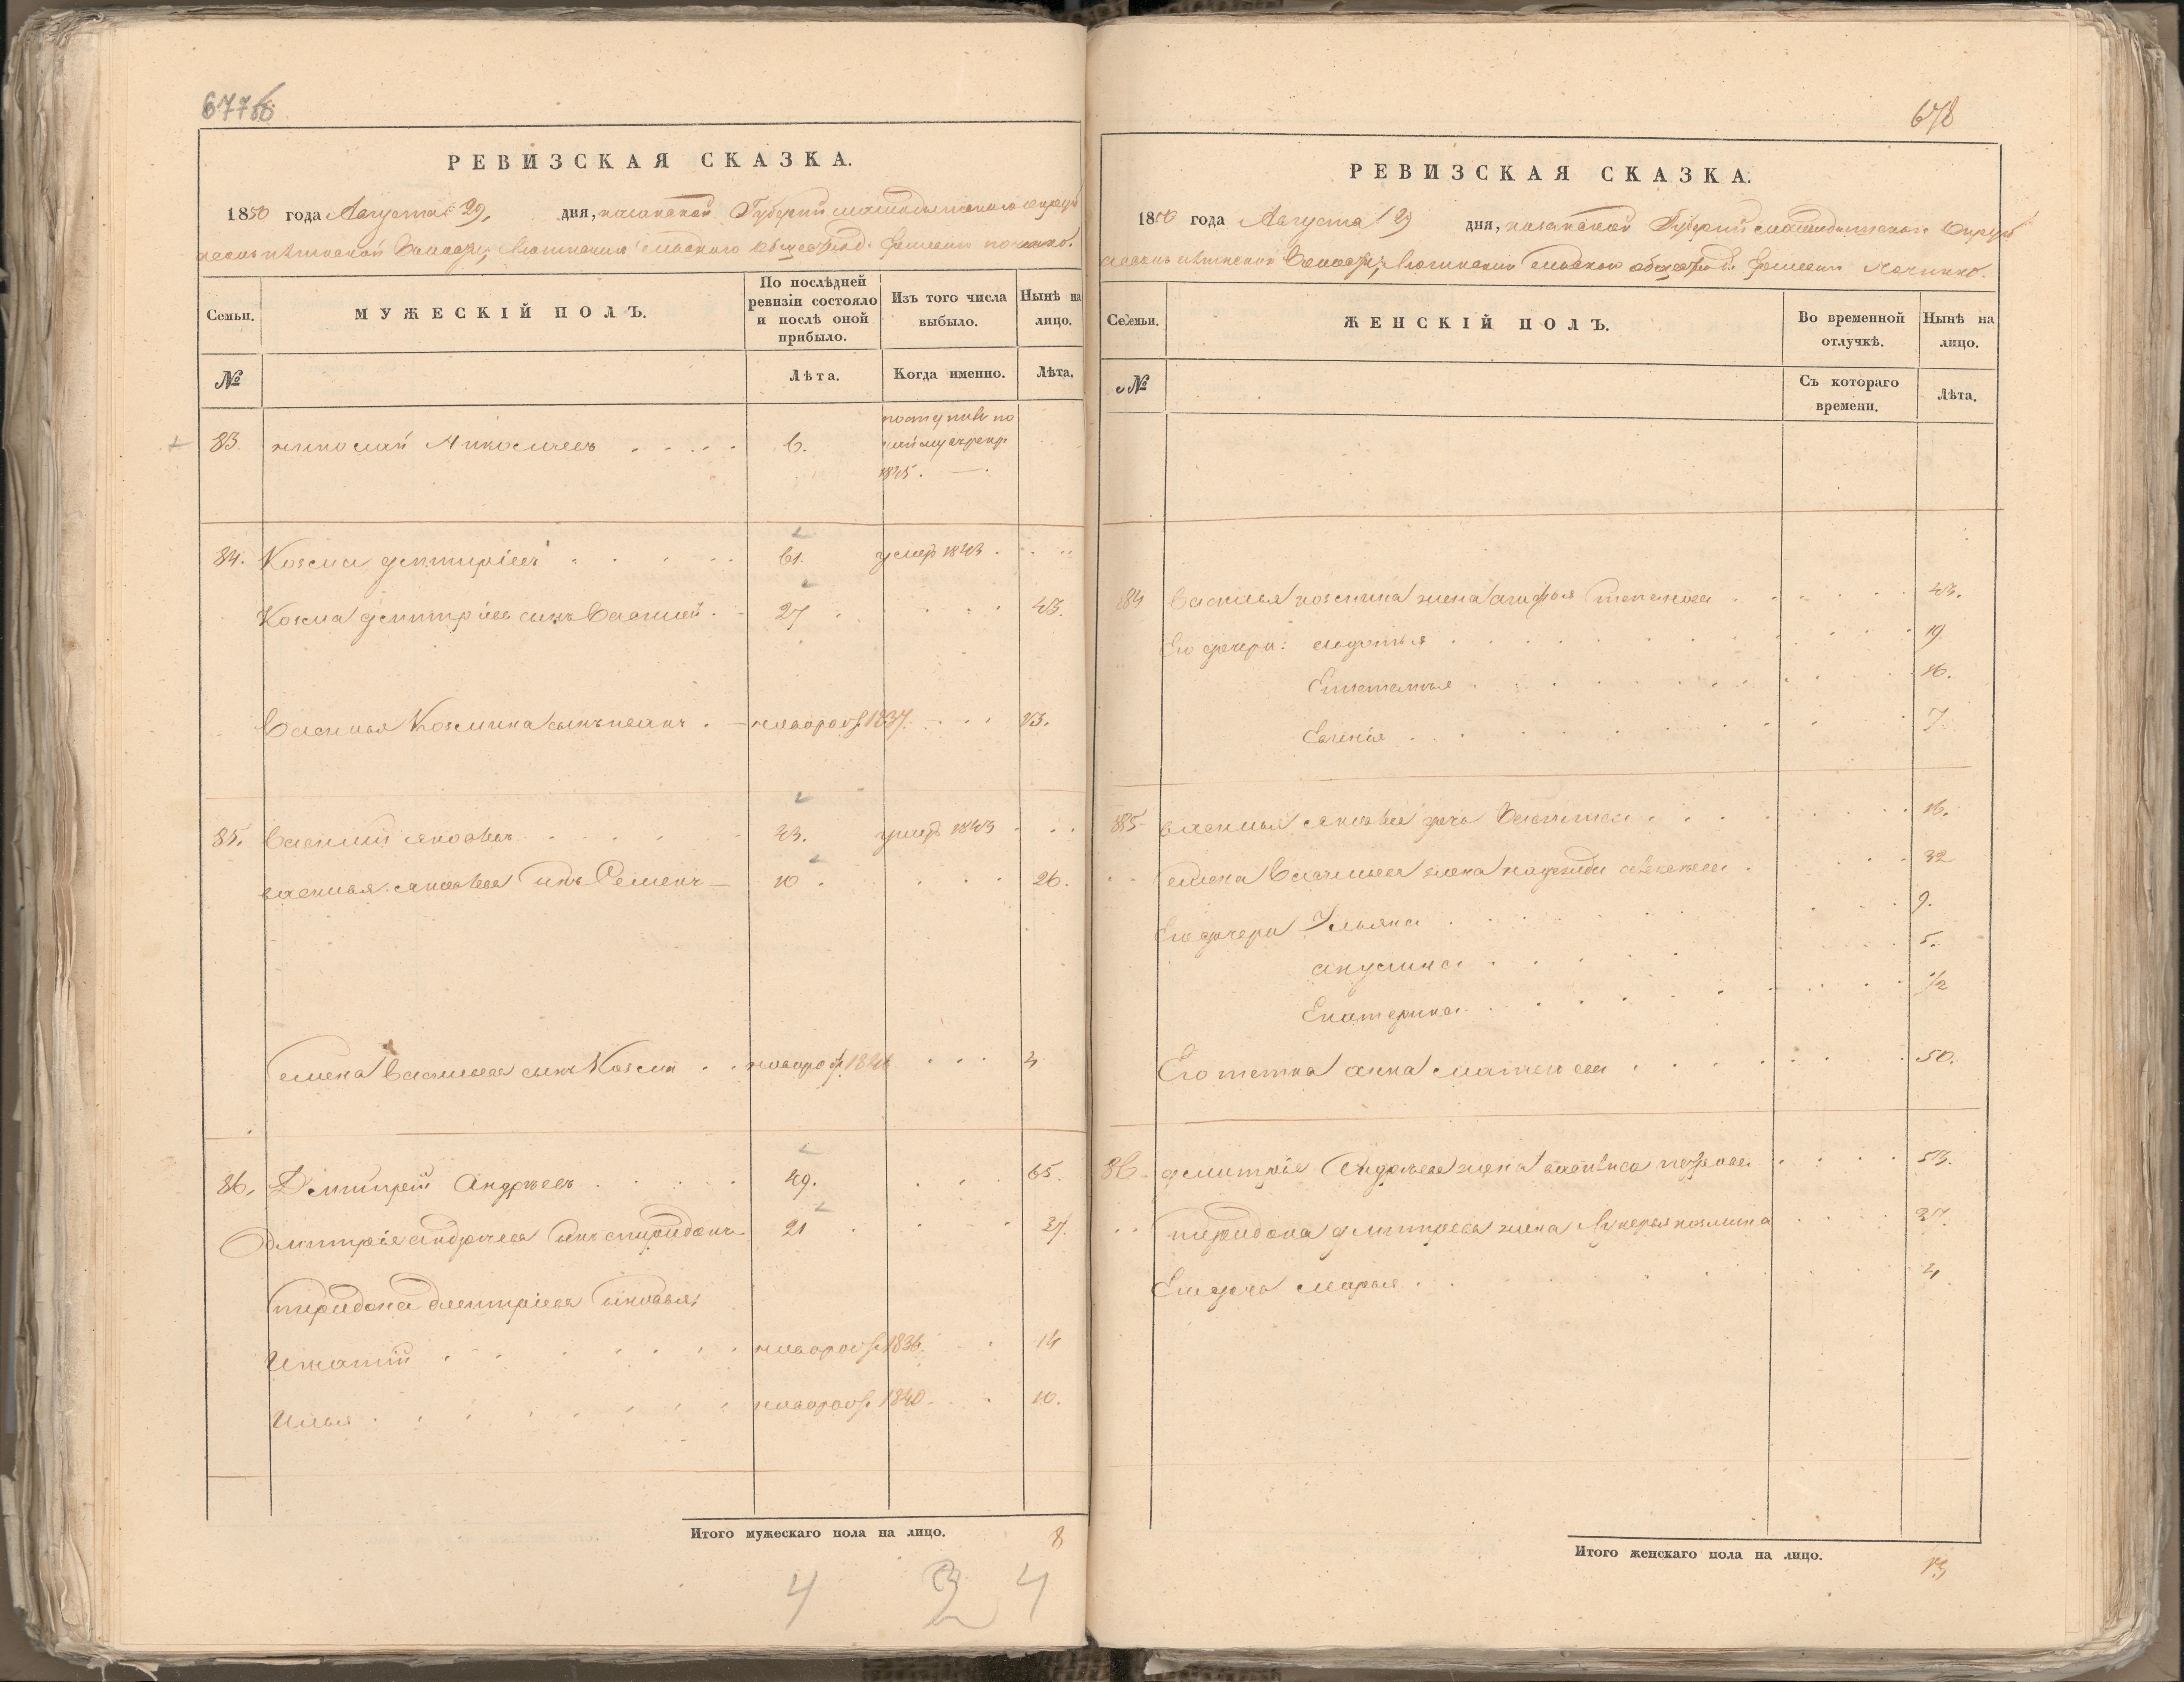 677б
РЕВИЗСКАЯ СКАЗКА.
1850 года Августа 29, дня, казанской Губерніи мамадышскаго округа
Семьи.
МУЖЕСКІЙ ПОЛЪ.
По послѣдней ревизіи состояло и послѣ оной прибыло.
Изъ того числа выбыло.
Нынѣ на лицо.
№
Лѣта.
Когда именно.
Лѣта.
83. николай Николаевъ 6.
1845.
84. Козма дмитріевъ 61. умеръ 1843
Козма дмитріева сынъ Василей 27 43.
Василья Козмина сынъ иванъ новорож 1837 13.
85. Василий яковлевъ 43. умеръ 1843
василья яковлева сынъ Семенъ 10 26.
семена Васильева сынъ Козма новорож 1846 4
86. Дмитрей Андреевъ 49. 65.
Дмитрія андреева сынъ спиридонъ 21 37.
спиридона дмитріева сыновья:
Игнатій новорож 1836 14
Илья новорож 1840 10.
Итого мужескаго пола на лицо. 8
4 3 4
678
РЕВИЗСКАЯ СКАЗКА.
1850 года Августа 29 дня, казанской Губерніи мамадышскаго округа
Семьи.
ЖЕНСКІЙ ПОЛЪ.
Во временной отлучкѣ.
Нынѣ на лицо.
№
Съ котораго времени.
Лѣта.
84 Василья козмина жена агафья степанова 43.
Его дочери: 19
16.
Евгенія 7
85 василья яковлева дочь Василиса 16.
семена Васильева жена 32
Его дочери Ульяна 9.
акулина 5.
Екатерина 1/2
Его тетка анна матвеева 50.
86 дмитрія Андреева жена петрова 53.
спиридона дмитріева жена лукерья козмина 37.
Его дочь марья 4
Итого женскаго пола на лицо. 13